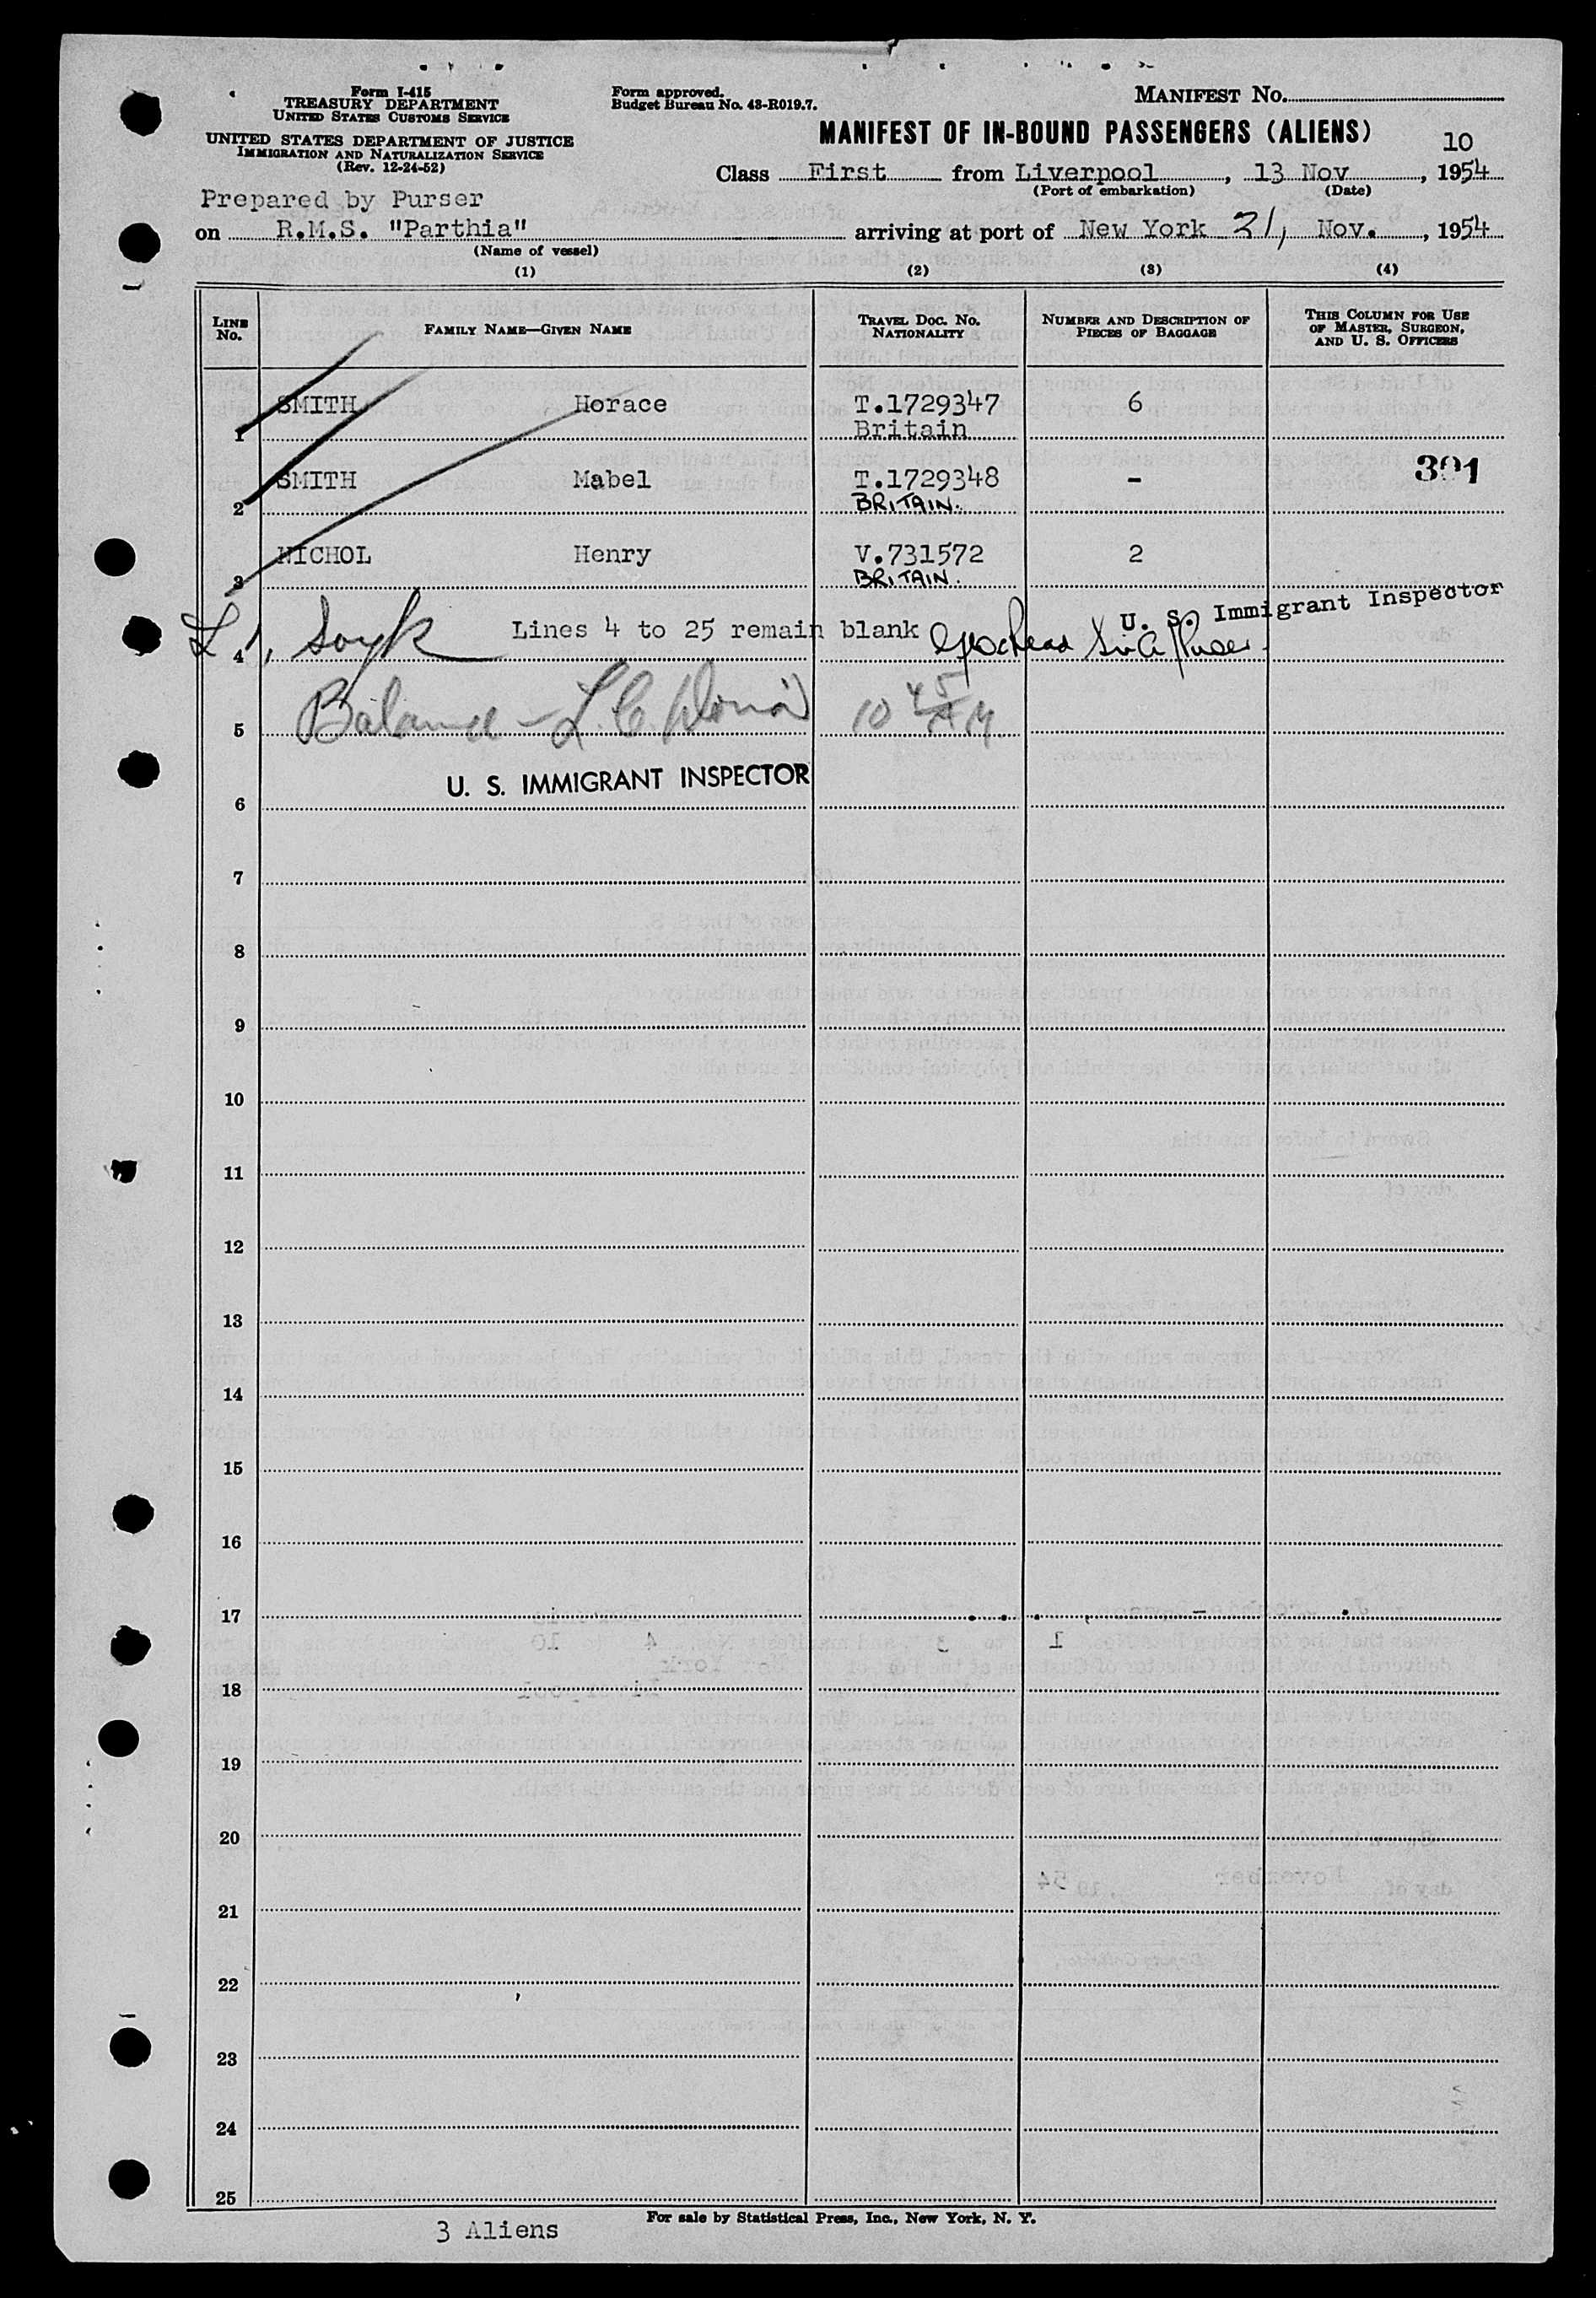 Form I-415
TREASURY DEPARTMENT
UNITED STATES CUSTOMS SERVICE
UNITED STATES DEPARTMENT OF JUSTICE
IMMIGRATION AND NATURALIZATION SERVICE
(Rev. 12-24-52)
Form approved.
Budget Bureau No. 43-R019.7.
MANIFEST NO.
MANIFEST OF IN-BOUND PASSENGERS (ALIENS)
10
Class First from Liverpool, 13 Nov, 1954
(Port of embarkation) (Date)
Prepared by Purser
on R.M.S. "Parthia" arriving at port of New York 21, Nov., 1954
(Name of vessel)
(1) (2) (3) (4)
LINE NO. FAMILY NAME—GIVEN NAME TRAVEL DOC. NO. NATIONALITY NUMBER AND DESCRIPTION OF PIECES OF BAGGAGE THIS COLUMN FOR USE OF MASTER, SURGEON, AND U. S. OFFICERS
SMITH Horace T.1729347 6
1 Britain
SMITH Mabel T.1729348 - 391
2 BRITAIN.
NICHOL Henry V.731572 2
3 BRITAIN.
U. S. Immigrant Inspector
Lines 4 to 25 remain blank
4
Balance - L.C. 10 45 AM
5
U. S. IMMIGRANT INSPECTOR
6
7
8
9
10
11
12
13
14
15
16
17
18
19
20
21
22
23
24
25
For sale by Statistical Press, Inc., New York, N. Y.
3 Aliens